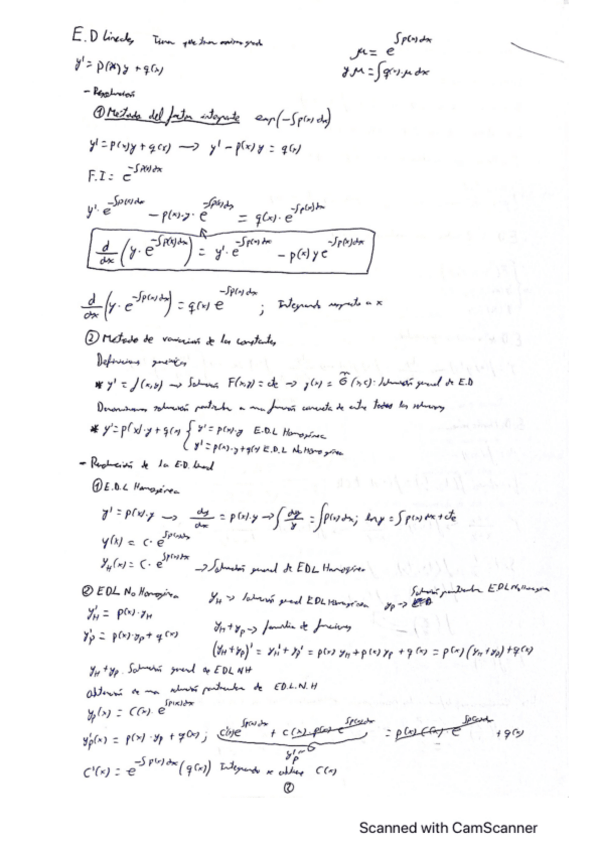 E.D lineales Tienen que tener mismo grado
μ = e^{∫p(x)dx}
y' = p(x)y + q(x)
y μ = ∫q(x)·μ dx
- Resolución
① Metodo del factor integrante exp(-∫p(x)dx)
y' = p(x)y + q(x) → y' - p(x)y = q(x)
F.I = e^{-∫p(x)dx}
y'·e^{-∫p(x)dx} - p(x)·y·e^{-∫p(x)dx} = q(x)·e^{-∫p(x)dx}
d/dx (y·e^{-∫p(x)dx}) = y'·e^{-∫p(x)dx} - p(x) y e^{-∫p(x)dx}
d/dx (y·e^{-∫p(x)dx}) = q(x) e^{-∫p(x)dx} ; Integrando respecto a x
② Metodo de variación de las constantes
Definiciones generales
* y' = f(x,y) → Solución F(x,y) = cte → y(x) = G(x,c). Solución general de E.D
Denominamos solución particular a una función concreta de entre todas las soluciones
* y' = p(x)·y + q(x) { y' = p(x)·y E.D.L Homogénea
y' = p(x)·y + q(x) E.D.L No Homogénea
- Resolución de la E.D. lineal
① E.D.L Homogénea
y' = p(x)·y → dy/dx = p(x)·y → ∫dy/y = ∫p(x)dx ; ln y = ∫p(x)dx + cte
y(x) = C·e^{∫p(x)dx}
y_H(x) = C·e^{∫p(x)dx} → Solución general de EDL Homogénea
② EDL No Homogénea y_H → Solución general EDL Homogénea y_P → Solución particular EDL No Homogénea
y'_H = p(x)·y_H
y'_P = p(x)·y_P + q(x) y_H + y_P → familia de funciones
(y_H + y_P)' = y_H' + y_P' = p(x) y_H + p(x) y_P + q(x) = p(x)(y_H + y_P) + q(x)
y_H + y_P. Solución general de EDL NH
obtención de una solución particular de E.D.L.N.H
y_P(x) = C(x)·e^{∫p(x)dx}
y'_P(x) = p(x)·y_P + q(x) ; C'(x)e^{∫p(x)dx} + C(x)·p(x)·e^{∫p(x)dx} = p(x) C(x) e^{∫p(x)dx} + q(x)
C'(x) = e^{-∫p(x)dx}(q(x)) Integrando se obtiene C(x)
②
Scanned with CamScanner